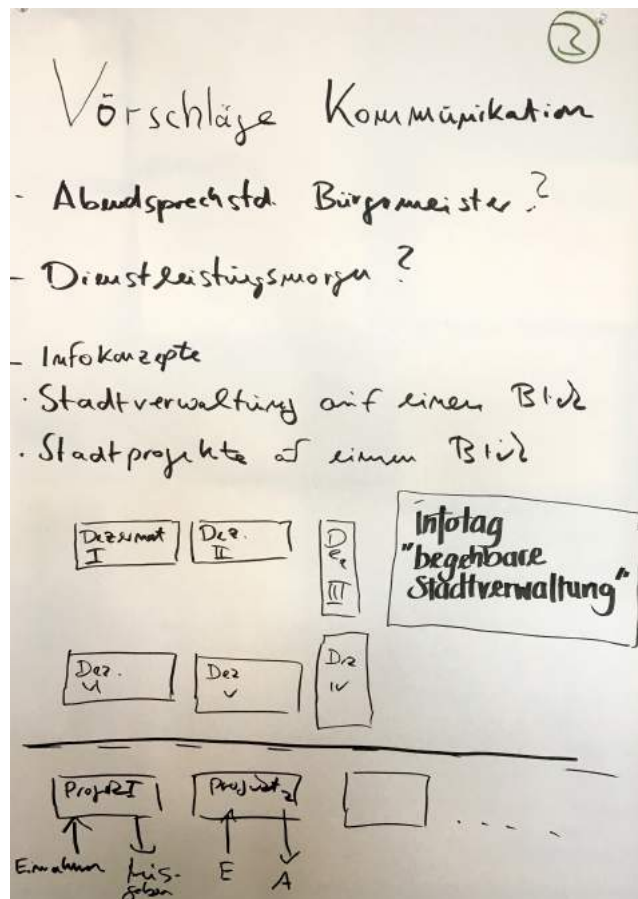 3
Vorschläge Kommunikation
- Abendsprechstd. Bürgermeister?
- Dienstleistungsmorgen?
- Infokonzepte
· Stadtverwaltung auf einen Blick
· Stadtprojekte af einen Blick
Dezernat I
Dez. II
Dez III
Infotag
"begehbare
Stadtverwaltung"
Dez. VI
Dez V
Dez IV
Projekt I
Projekt 2
Einnahmen
Ausgaben
E
A